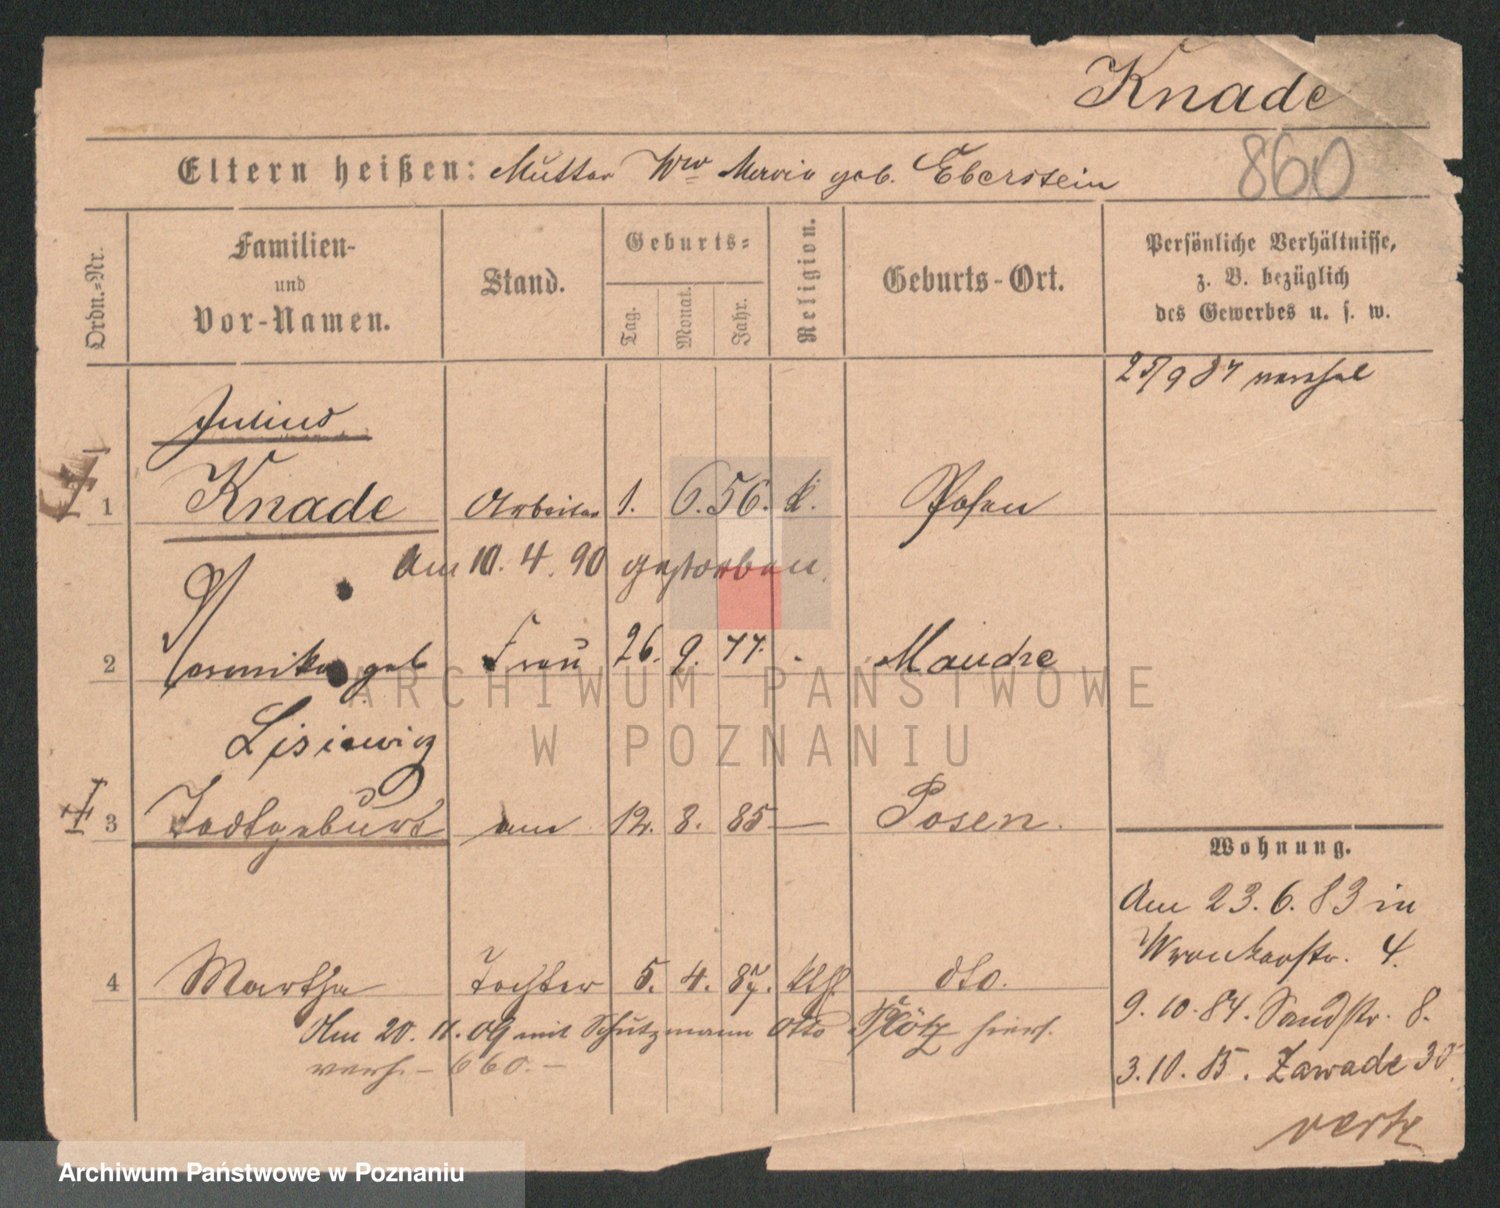 Knade
860
Eltern heißen: Mutter Ww Maria geb. Eberstein
Ordn.-Nr.
Familien-
und
Vor-Namen.
Stand.
Geburts-
Tag.
Monat.
Jahr.
Religion.
Geburts-Ort.
Persönliche Verhältnisse,
z. B. bezüglich
des Gewerbes u. s. w.
25/9 87
Julius
1 Knade Arbeiter 1. 6. 56. k. Posen
Am 10. 4. 90 gestorben.
2 Veronika geb Frau 26. 9. Maudre
Lisiewicz
3 Todtgeburt am 12. 8. 85 — Posen.
4 Martha Tochter 5. 4. 87. kth. dto.
Am 20. 11. 09 mit Schutzmann Otto Plötz hiers.
verh. – 660. –
Wohnung.
Am 23. 6. 83 in
Wronkerstr. 4.
9. 10. 84. Sandstr. 8.
3. 10. 85. Zawade
verte
ARCHIWUM PAŃSTWOWE
W POZNANIU
Archiwum Państwowe w Poznaniu